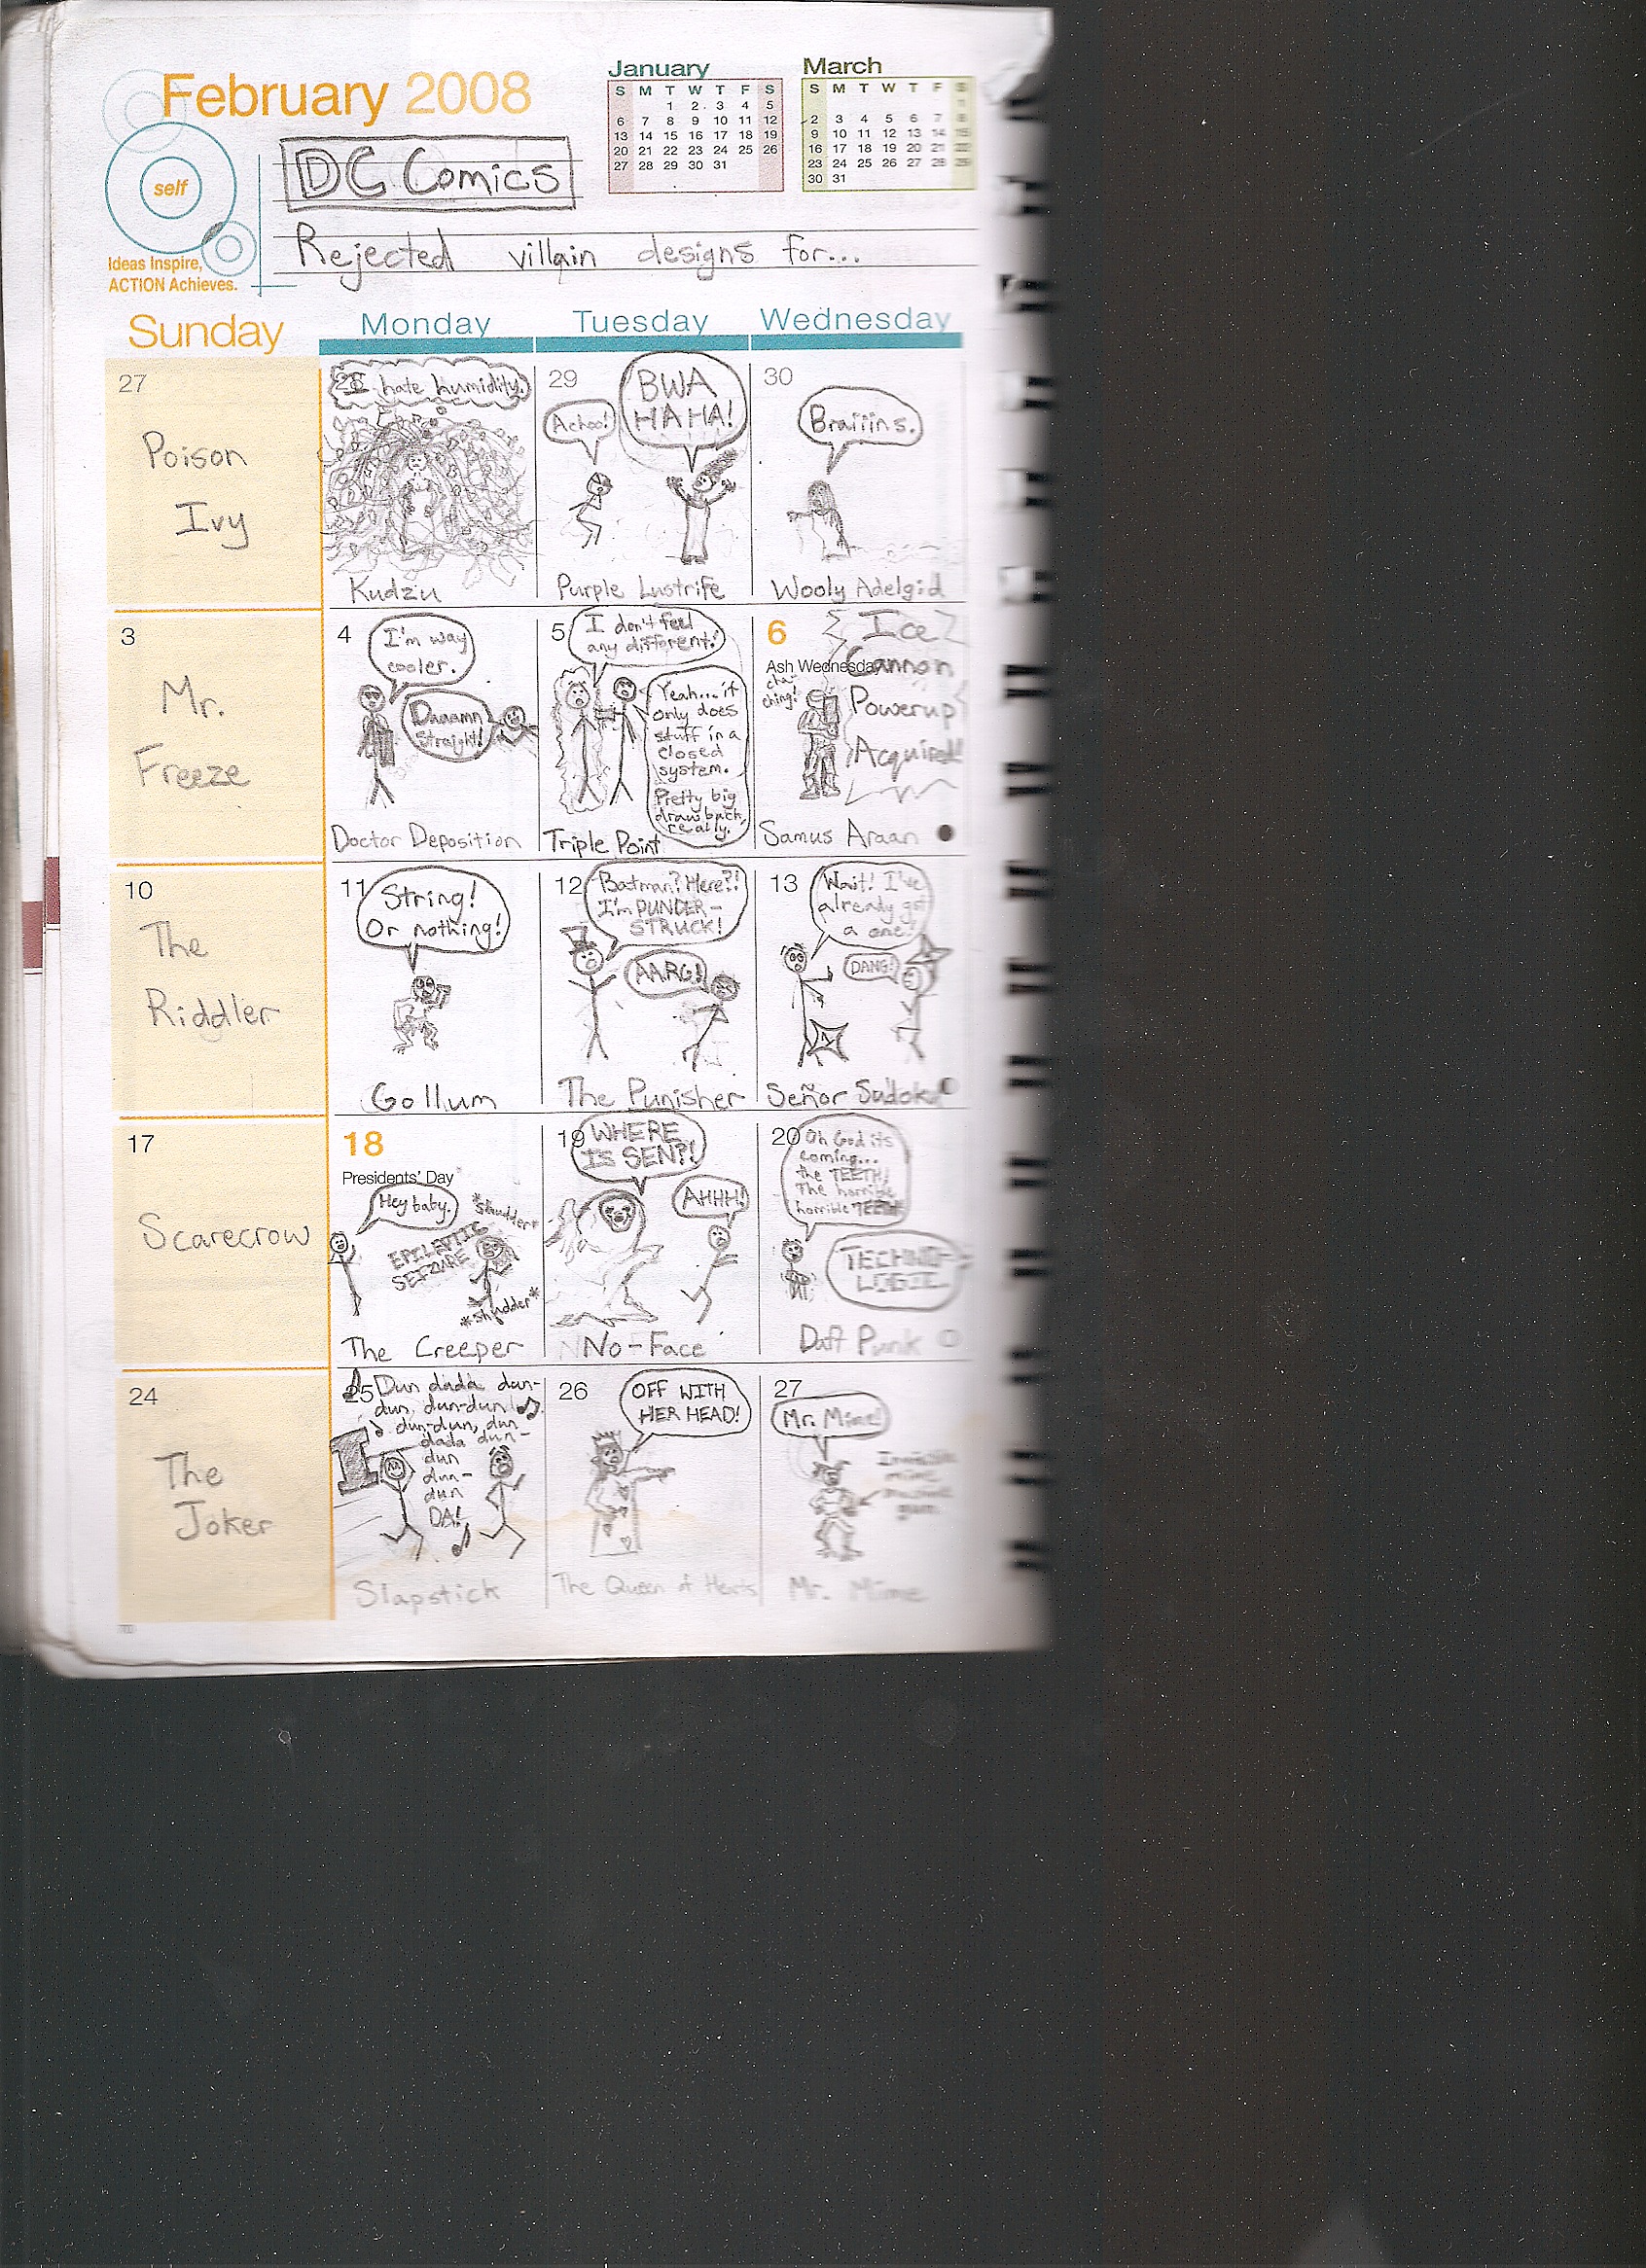 February 2008
self
Ideas Inspire,
ACTION Achieves.
DC Comics
Rejected villain designs for...
January
S M T W T F S
1 2 3 4 5
6 7 8 9 10 11 12
13 14 15 16 17 18 19
20 21 22 23 24 25 26
27 28 29 30 31
March
S M T W T F S
1
2 3 4 5 6 7 8
9 10 11 12 13 14 15
16 17 18 19 20 21 22
23 24 25 26 27 28 29
30 31
Sunday Monday Tuesday Wednesday
27
Poison
Ivy
I hate humidity.
Kudzu
29
Achoo!
BWA
HA HA!
Purple Lustrife
30
Braiiins.
Wooly Adelgid
3
Mr.
Freeze
4
I'm way
cooler.
Daaamn
Straight!
Doctor Deposition
5
I don't feel
any different!
Yeah... it
only does
stuff in a
closed
system.
Pretty big
drawback,
really.
Triple Point
6
Ash Wednesday
cha-
ching!
Ice
Cannon
Powerup
Acquired!
Samus Araan
10
The
Riddler
11
String!
Or nothing!
Gollum
12
Batman? Here?!
I'm PUNDER-
STRUCK!
AARG!
The Punisher
13
Wait! I've
already got
a one!
DANG!
Señor Sudoku
17
Scarecrow
18
Presidents' Day
Hey baby.
*shudder*
EPILEPTIC
SEIZURE
*shudder*
The Creeper
19
WHERE
IS SEN?!
AHHH!
No-Face
20
Oh God its
coming...
the TEETH!
The horrible
horrible TEETH
TECHNO-
LOGIC
Daft Punk
24
The
Joker
25
Dun dada dun-
dun, dun-dun!
dun-dun, dun
dada dun-
dun
dun-
dun
DA!
Slapstick
26
OFF WITH
HER HEAD!
The Queen of Hearts
27
Mr. Mime!
Invisible
mime
machine
gun.
Mr. Mime
70